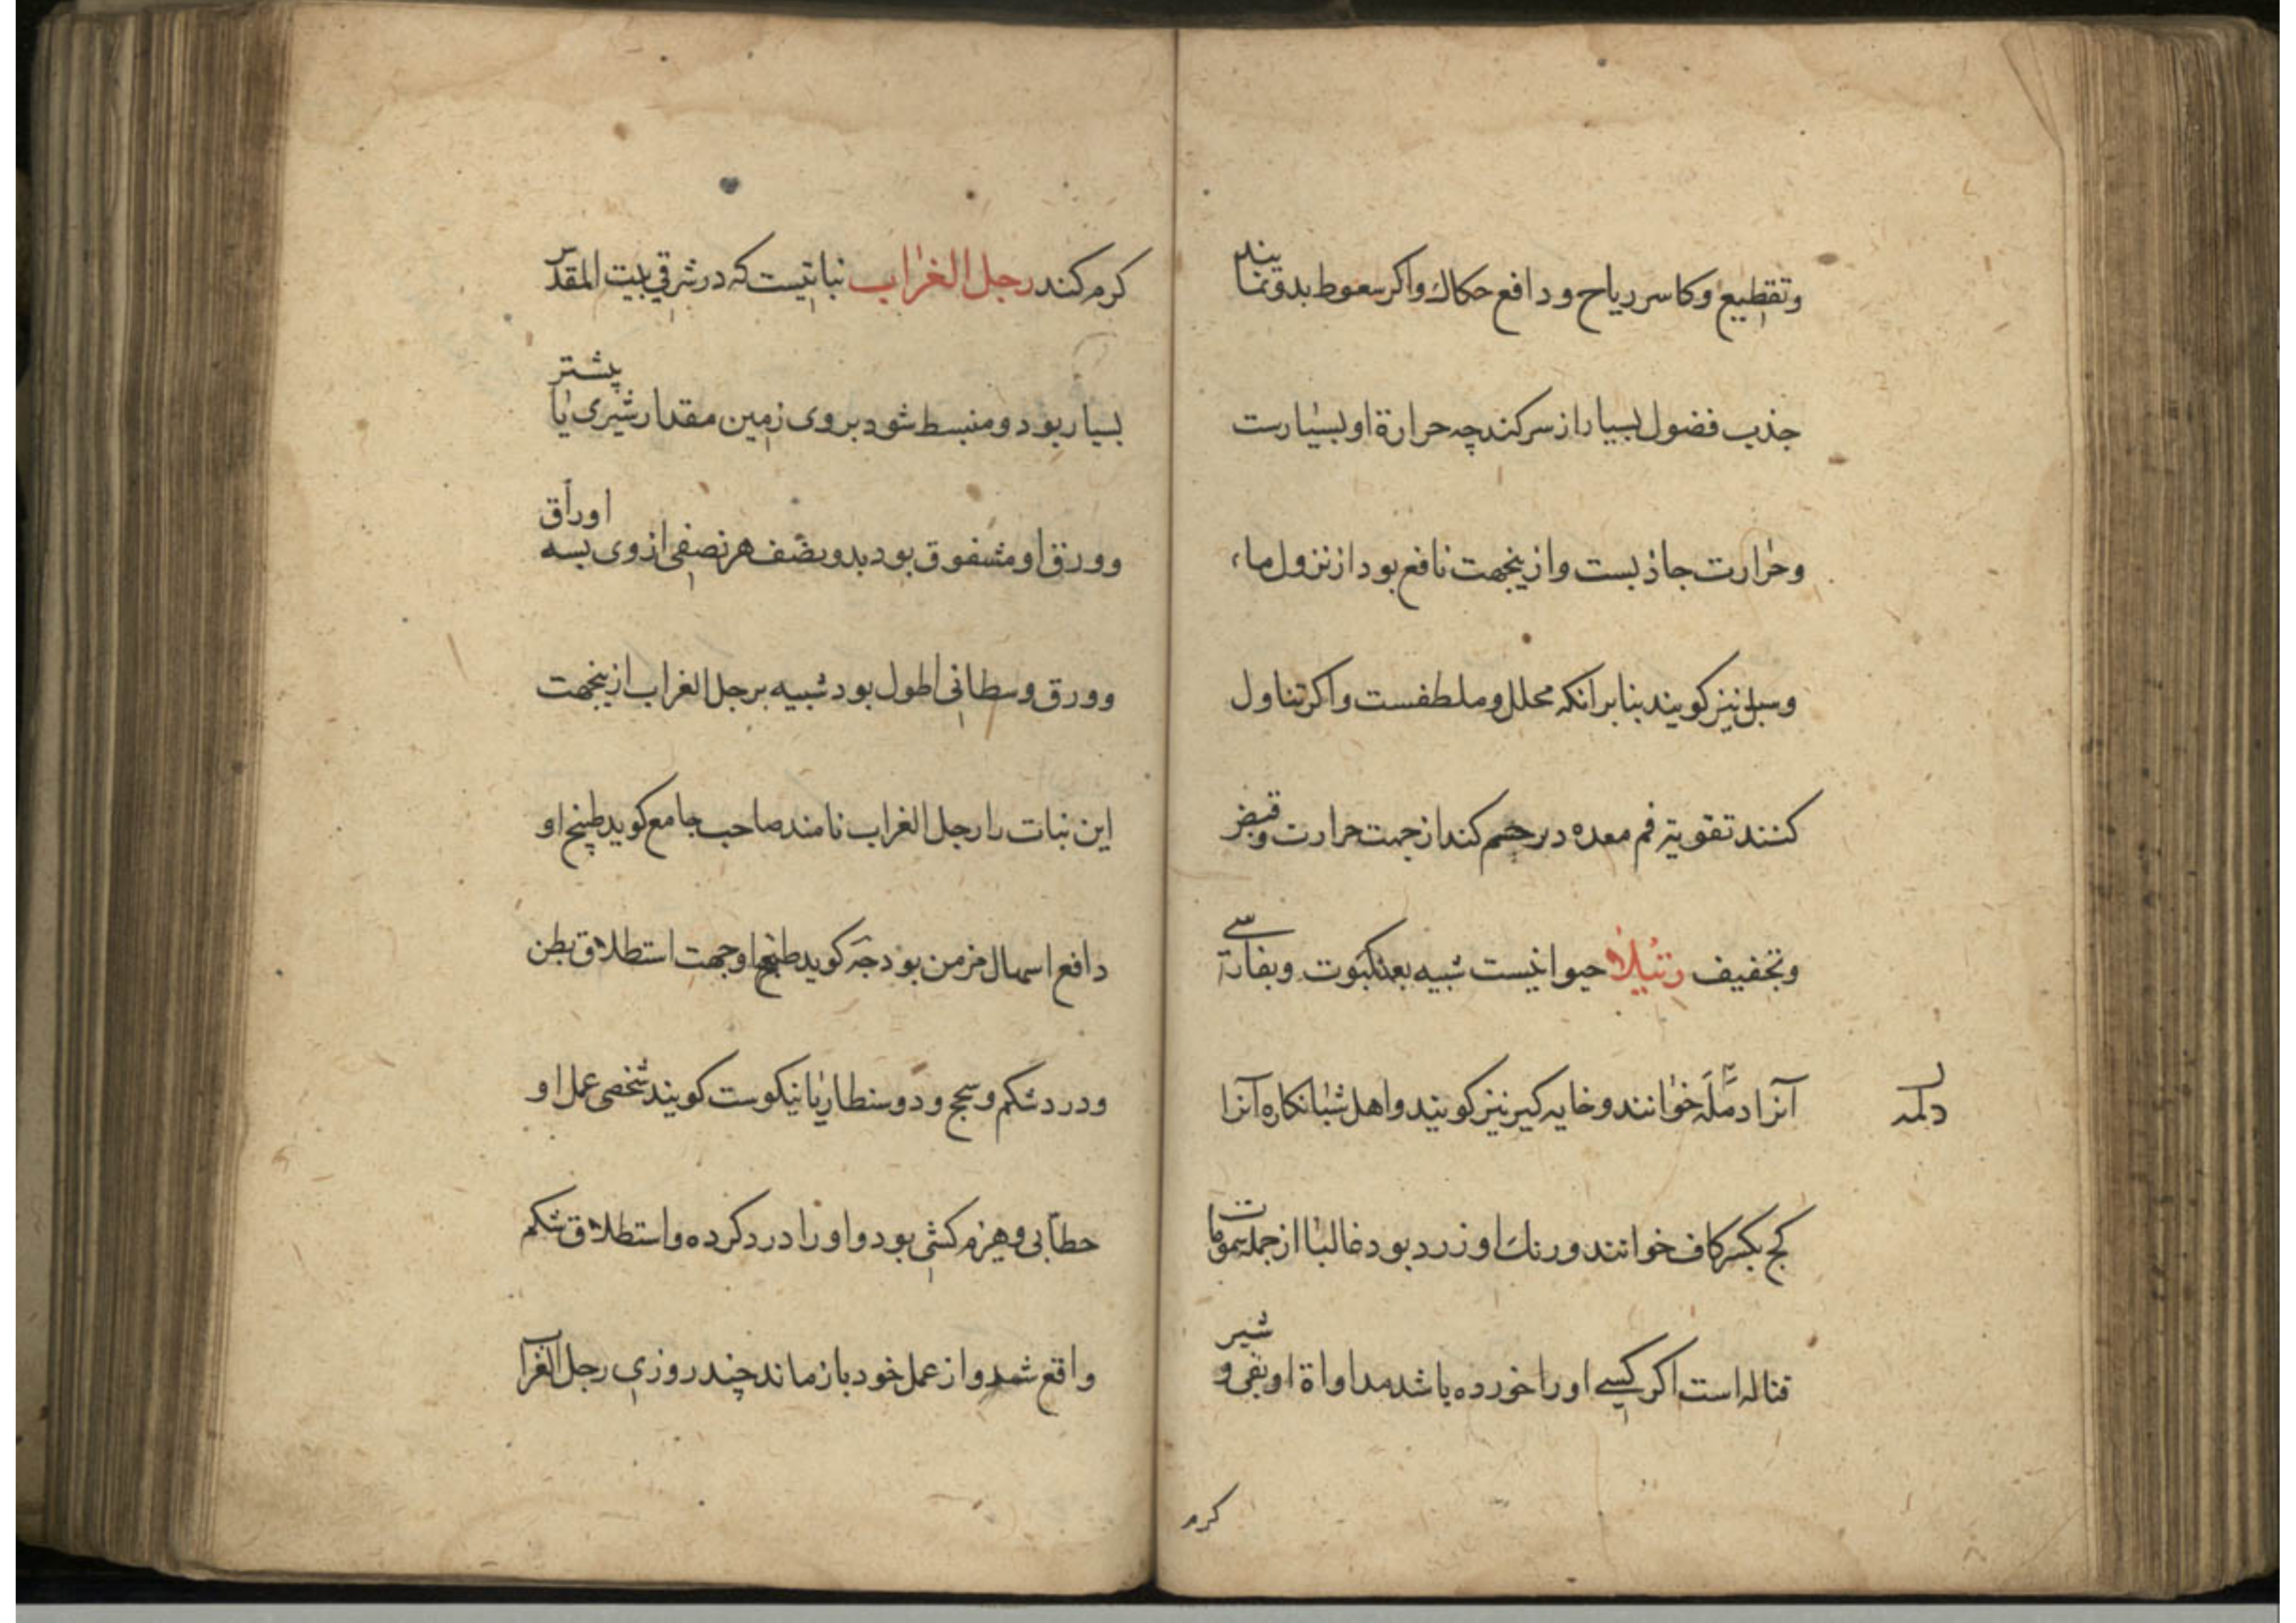 وتقطیع وکاسر ریاح و دافع حکاک واکر سعوط بدو نمایند
جذب فضول بسیار از سر کند چه حرارة او بسیارست
وحرارت جاذبست وازینجهت نافع بود از نزول ماء
وسبل نیز کویند بنا بر انکه محلل و ملطفست واکر تناول
کنند تقویة فم معده در جسم کند از جهت حرارت وقبض
وتجفیف رتیلا حیوانیست شبیه بعنکبوت وبفارسی
آنرا دمله خوانند وخایه کیر نیز کویند واهل شبانکاره آنرا
دلمه
کج بکسر کاف خوانند ورنک او زرد بود غالبا از جمله سمومات
قتاله است اکر کسی او را خورده باشد مداواة او بقی و شیر
کرم
کرم کند رجل الغراب نباتیست که در شرقی بیت المقدس
بسیار بود ومنبسط شود بروی زمین مقدار شبری یا پیشتر
وورق او مشقوق بود بدو نصف هر نصفی از وی بسه اوراق
وورق وسطانی اطول بود شبیه برجل الغراب ازینجهت
این نبات را رجل الغراب نامند صاحب جامع کوید طبیخ او
دافع اسهال مزمن بود جه کوید طبیخ او جهت استطلاق بطن
ودرد شکم وسحج ودوسنطاریا نیکوست کویند شخصی عمل او
حطابی وهیزم کشی بود واو را درد کرده واستطلاق شکم
واقع شد واز عمل خود باز ماند چند روزی رجل الغراب